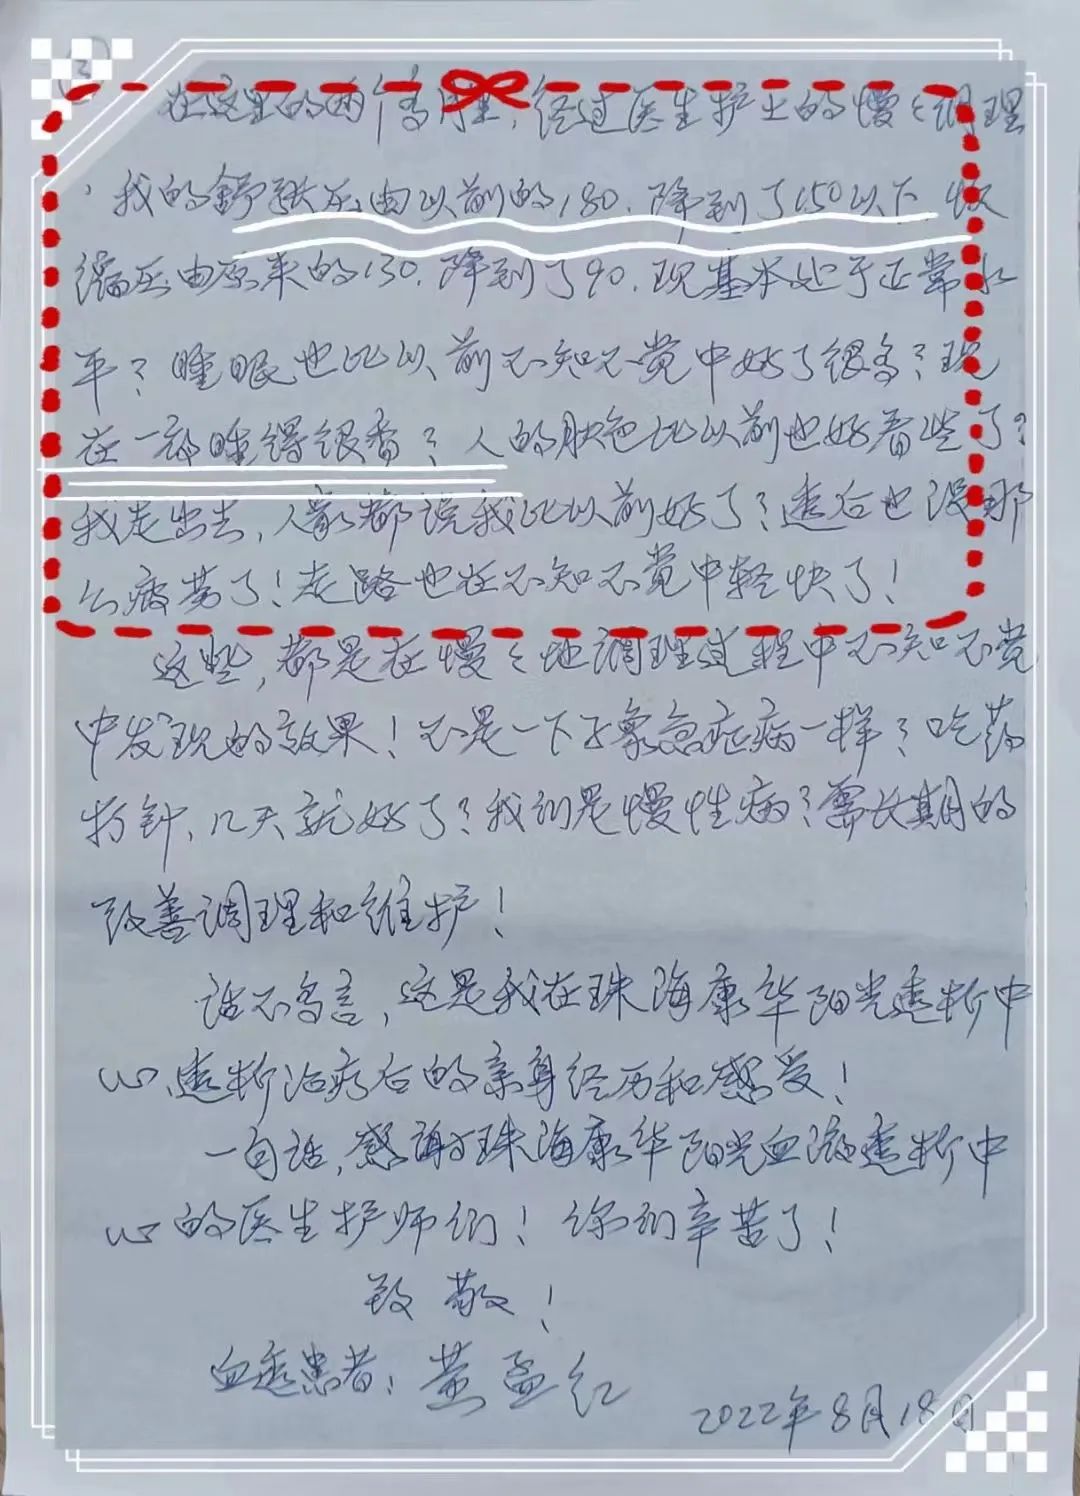 (3)
在这里的两个多月里，经过医生护士的慢々调理
，我的舒张压由以前的180.降到了150以下.收
缩压由原来的130.降到了90.现基本处于正常水
平？睡眠也比以前不知不觉中好了很多？现
在一部睡得很香？人的肤色比以前也好看些了？
我走出去，人家都说我比以前好了？透后也没那
么疲劳了！走路也在不知不觉中轻快了！
这些，都是在慢々地调理过程中不知不觉
中发现的效果！不是一下子象急症病一样？吃药
打针、几天就好了？我们是慢性病？需长期的
改善调理和维护！
话不多言，这是我在珠海康华阳光透析中
心、透析治疗后的亲身经历和感受！
一句话，感谢珠海康华阳光血液透析中
心的医生护师们！你们辛苦了！
致敬！
血透患者：黄孟红
2022年8月18日